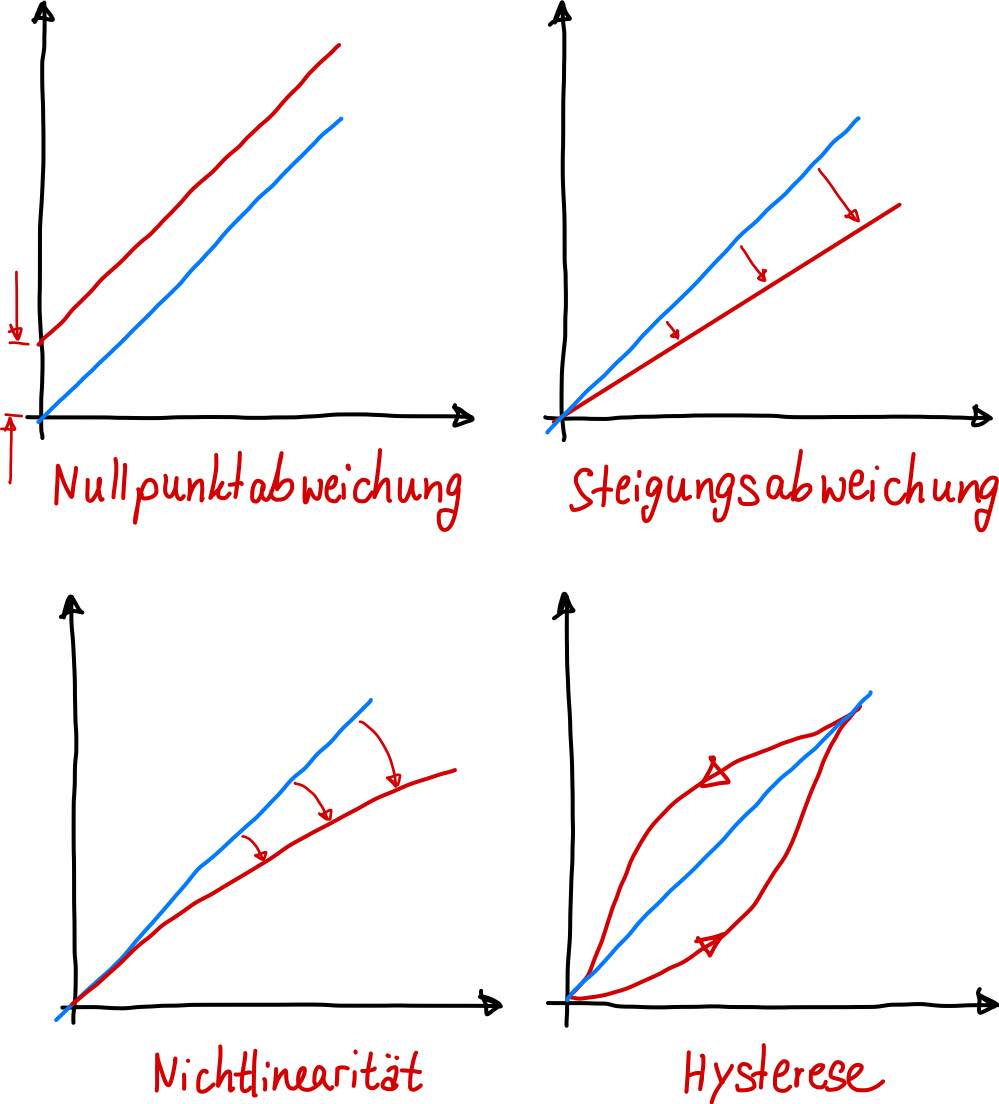 Nullpunktabweichung
Steigungsabweichung
Nichtlinearität
Hysterese